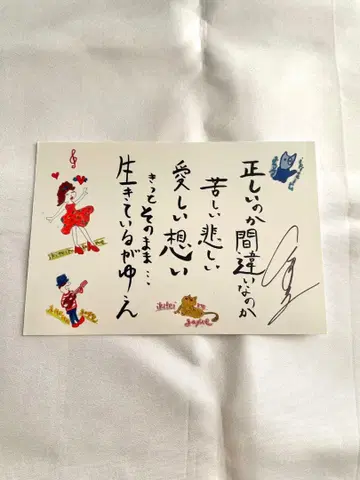 正しいのか間違いなのか
苦しい悲しい
愛しい想い
きっとそのまま…
生きているがゆえ